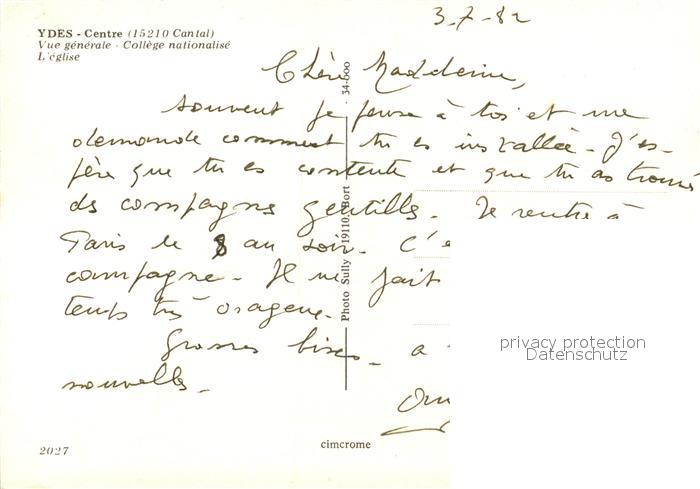 3-7-82
YDES - Centre (15210 Cantal)
Vue générale - Collège nationalisé
L'église
Chère Madeleine,
souvent je pense à toi et me
demande comment tu es installée - J'es-
père que tu es contente et que tu as trouvé
des compagnes gentilles. Je rentre à
Paris le 8 au soir. C'e
campagne - Il ne fait
temps très orageux.
Grosses bises - a
nouvelles -
34-000
Photo Sully - 19110 Bort
privacy protection
Datenschutz
2027
cimcrome